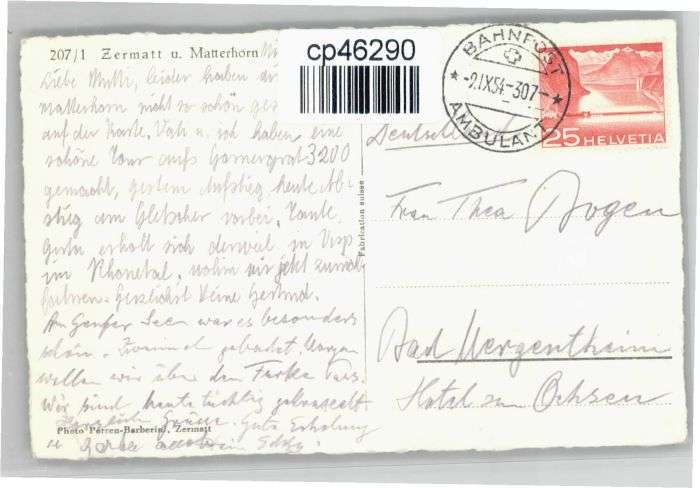 207/1 Zermatt u. Matterhorn
cp46290
BAHNPOST
-9.IX54-307-
AMBULANT
25 HELVETIA
Liebe Mutti, leider haben
Matterhorn nicht so schön
auf der Karte. Vati u. ich haben eine
schöne Tour aufs Gornergrat 3200
gemacht, gestern Aufstieg, heute Ab-
stieg am Gletscher vorbei. Tante
erholt sich derweil in Visp
im Rhonetal, wohin wir jetzt
Deine Gertrud.
Am Genfer See war es besonders
schön. gebadet. Morgen
wollen wir über den Furka
Wir sind heute tüchtig
Herzlich Grüsse. Gute Erholung
u.
Photo Perren-Barberini, Zermatt
Fabrication suisse
Deutschland
Frau Thea Bogen
Bad Mergentheim
Hotel zum Ochsen